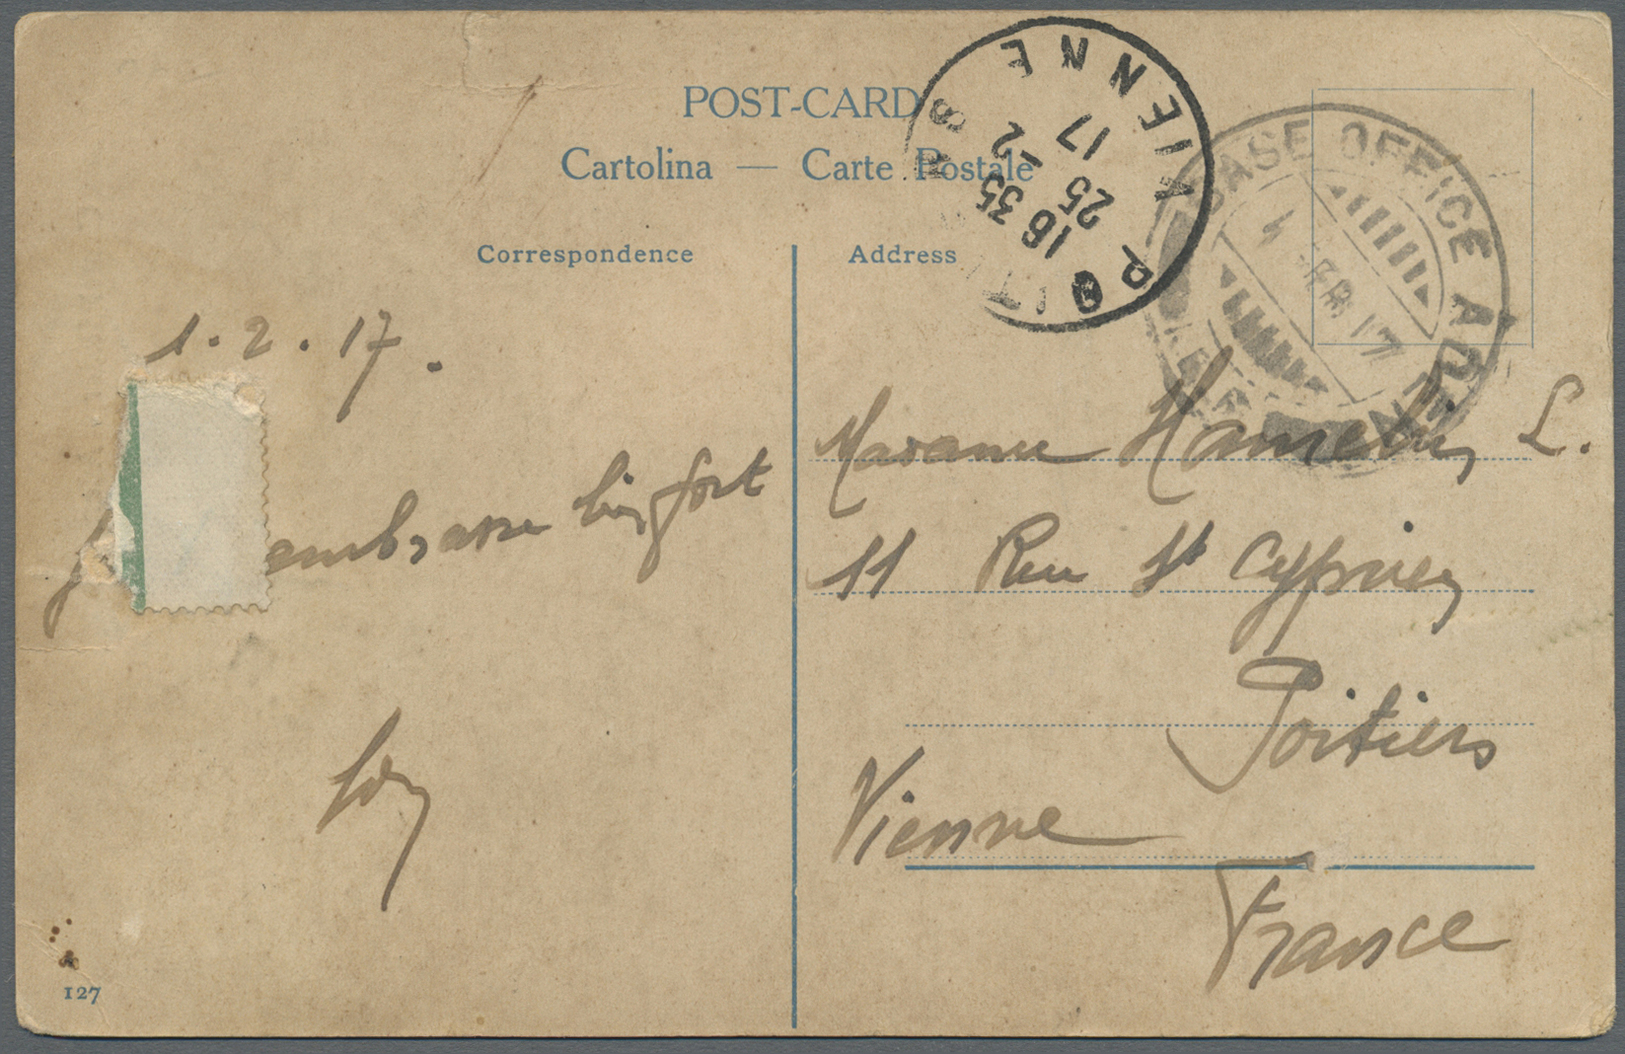 POST-CARD
Cartolina — Carte Postale
Correspondence
Address
POITIERS
VIENNE
16 35
25 -2
17
BASE OFFICE ADEN
FEB 17
1.2.17.
embrasse bien fort
Madame Hamelin L.
11 Rue St Cyprien
Poitiers
Vienne
France
127